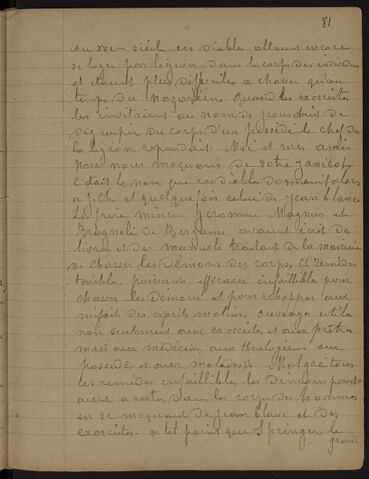 81
Au XVIe siècle ces diables allaient encore
se loger par légion dans le corps des individus
et étaient plus difficiles a chasser qu'au
temps du Nazaréen. Quand les exorcistes
les invitaient au nom de Jesus droit de
déguerpir du corps d'un possédé le chef de
la légion repondait: Moi et mes amis
nous nous moquons de votre
c'était le nom que ces diables donnaient alors
a J. Ch. et quelquefois celui de jean blanc.
Le frère mineur Jeromme Magnus et
Brognoli de Bergame avaient écrit des
livres et des manuels traitant de la manière
de chasser les démons des corps,
puissants, efficaces infaillibles pour
chasser les demons et pour échapper aux
méfait des esprit malins, ouvrage utile
non seulement aux exorcistes et aux prêtres
mais aux médecins, aux theologiens aux
possedés et aux malades. Malgré tous
les remèdes infaillible les demons
a rester dans les corps des hommes
en se moquant de jean blanc et des
exorcistes a tel point que Sprenger, le
grand